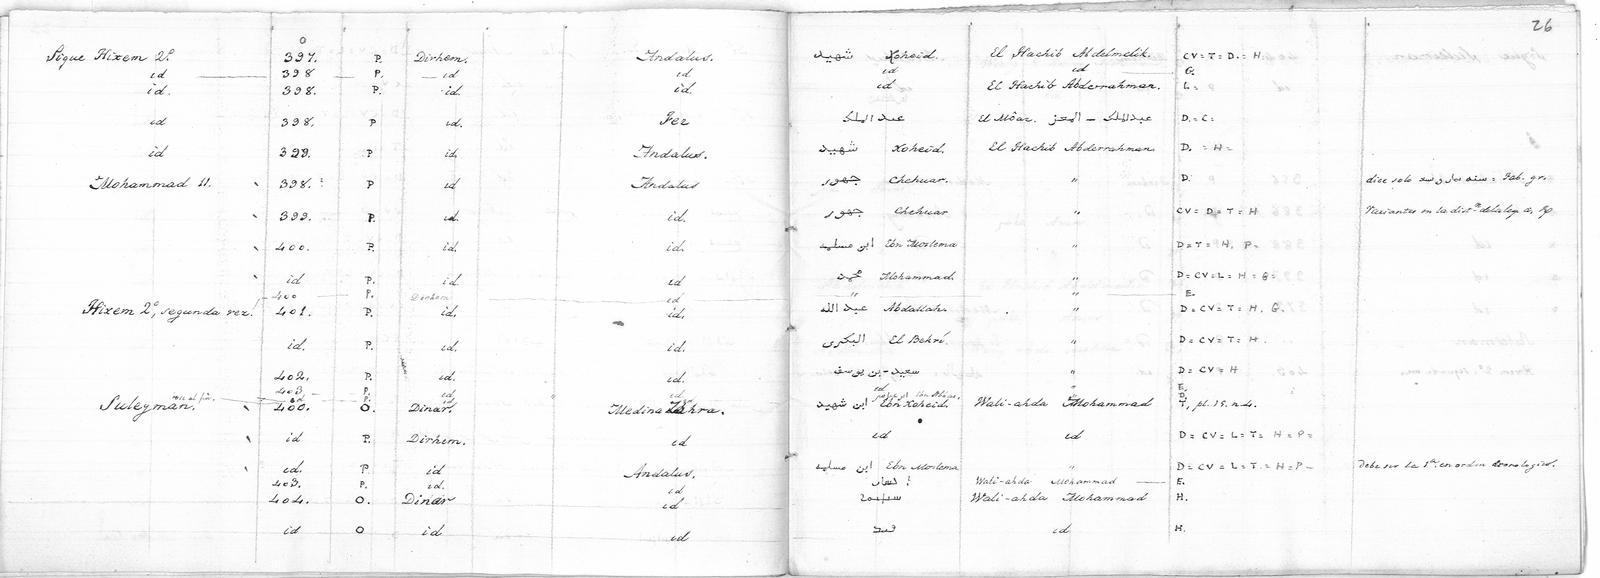 26
Sigue Hixem 2º. 397. P. Dirhem. Andalus. شهيد Xoheid. El Hachib Abdelmelik. CV = T = D. = H.
id 398 P. id id id id G.
id. 398. P. id. id. id El Hachib Abderrahman. L.
id 398. P id. Fez عبد الملك El Móar. عبدالملك – المعز D. = C.
id 399. P id. Andalus. شهيد Xoheid. El Hachib Abderrahman. D. = H =
Mohammad II. 398. P id Andalus جهور Chehuar. " D. dice solo = Fab. gr.
399. P. id. id. جهور Chehuar " CV = D = T = H Variantes en la
400. P. id. id. ابن مسلمه Ebn Moslema " D = T = H. P.
id P. id. id محمد Mohammad. " D = CV = L = H = G =
400 P. Dirhem id " " E.
Hixem 2º, segunda vez. 401. P. id. id. عبد الله Abdallah. " D = CV = T = H. G.
id. P. id. id. البكرى El Bekrí. " D = CV = T = H.
402. P. id. id. سعيد بن يوسف " D = CV = H
403. P. id id id " E.
Suleyman. 400. O. Dinar. Medina Zahra. ابن شهيد Ebn Xoheid. Wali-ahda Mohammad T, pl. 15. n. 4.
id P. Dirhem. id id id D = CV = L = T = H = P =
id. P id Andalus. ابن مسلمه Ebn Moslema " D = CV = L = T. = H = P – Debe ser la 1ª en orden cronológico.
403. P. id. id Wali-ahda Mohammad E.
404. O. Dinar id Wali-ahda Mohammad H.
id O id id id H.